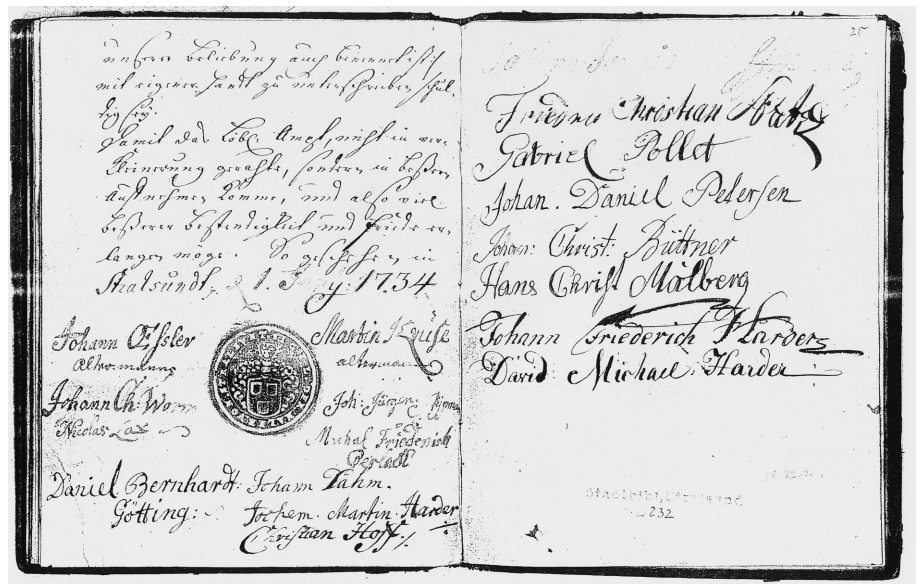 unserer beliebung auch benennet ist,
mit eigener Handt zu unterschreiben schul-
dig sey.
Damit das Löbl. Ampt, nicht in ver-
kleinerung gerahte, sondern in beßern
Auffnehmen komme, und also viel
beßerer bestendigkeit und friede er-
langen möge. So geschehen in
Stralsundt, 1. 1734
Johann Eßler
Altermann
Martin
alterman
Johann Ch: Worm
Nicolas
Joh: Jürgen
Michal Friederich
Daniel Bernhardt
Götting:
Johann Dahm.
Jochem. Martin. Harder
Christian Hoff
25
Christian
Gabriel Pollet
Johan. Daniel Petersen
Johan: Christ: Büttner
Hans Christ Malberg
Johann Friederich Harder
David Michael Harder
232